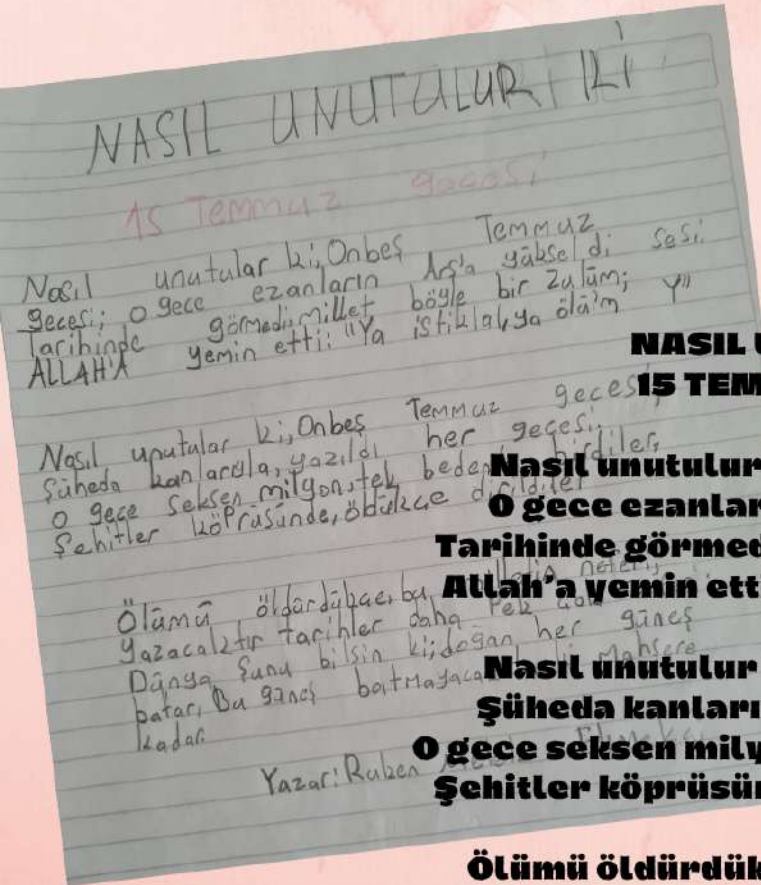 NASIL UNUTULUR Kİ
15 Temmuz gecesi
Nasıl unutular ki, Onbeş Temmuz
gecesi; o gece ezanların Arş'a yükseldi sesi.
Tarihinde görmedi, millet böyle bir zulüm;
ALLAH'A yemin etti: "Ya istiklal, ya ölü'm
Nasıl unutular ki, Onbeş Temmuz gecesi,
Şüheda kanlarıyla, yazıldı her gecesi.
O gece seksen milyon, tek beden birdiler,
Şehitler köprüsünde, öldükçe dirildiler
Ölümü öldürdükçe, bu
yazacaktır tarihler daha pek
Dünya şunu bilsin ki; doğan her güneş
batar, Bu güneş Mahşere
kadar.
Yazar: Ruben
NASIL U
15 TEM
Nasıl unutulur
O gece ezanlar
Tarihinde görmed
Allah'a yemin ett
Nasıl unutulur
Şüheda kanları
O gece seksen mily
Şehitler köprüsü
Ölümü öldürdük